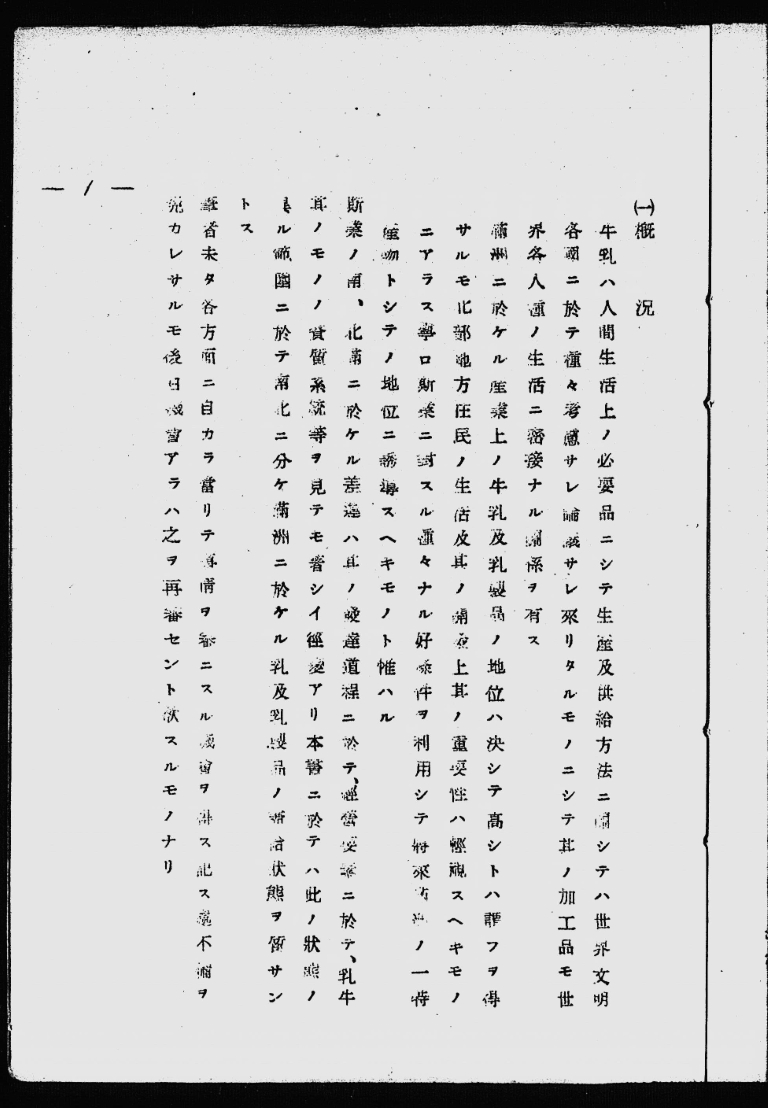 ㈠概況
牛乳ハ人間生活上ノ必要品ニシテ生産及供給方法ニ關シテハ世界文明
各國ニ於テ種々考慮サレ論議サレ來リタルモノニシテ其ノ加工品モ世
界各人種ノ生活ニ密接ナル關係ヲ有ス
滿洲ニ於ケル產業上ノ牛乳及乳製品ノ地位ハ決シテ高シトハ謂フヲ得
サルモ北部地方住民ノ生活及其ノ上其ノ重要性ハ輕視スヘキモノ
ニアラス寧ロ斯業ニ對スル種々ナル好條件ヲ利用シテ將來滿洲ノ一特
產物トシテノ地位ニ誘導スヘキモノト惟ハル
斯業ノ南、北滿ニ於ケル差違ハ其ノ發達道程ニ於テ、經營要素ニ於テ、乳牛
其ノモノノ資質系統等ヲ見テモ著シイ徑變アリ本書ニ於テハ此ノ狀態ノ
異ル範圍ニ於テ南北ニ分ケ滿洲ニ於ケル乳及乳製品ノ需給狀態ヲ質サン
トス
筆者未タ各方面ニ自カラ當リテ事情ヲ審ニスル機會ヲ得ス記ス處不備ヲ
免カレサルモ後日機會アラハ之ヲ再審セント欲スルモノナリ
— 1 —